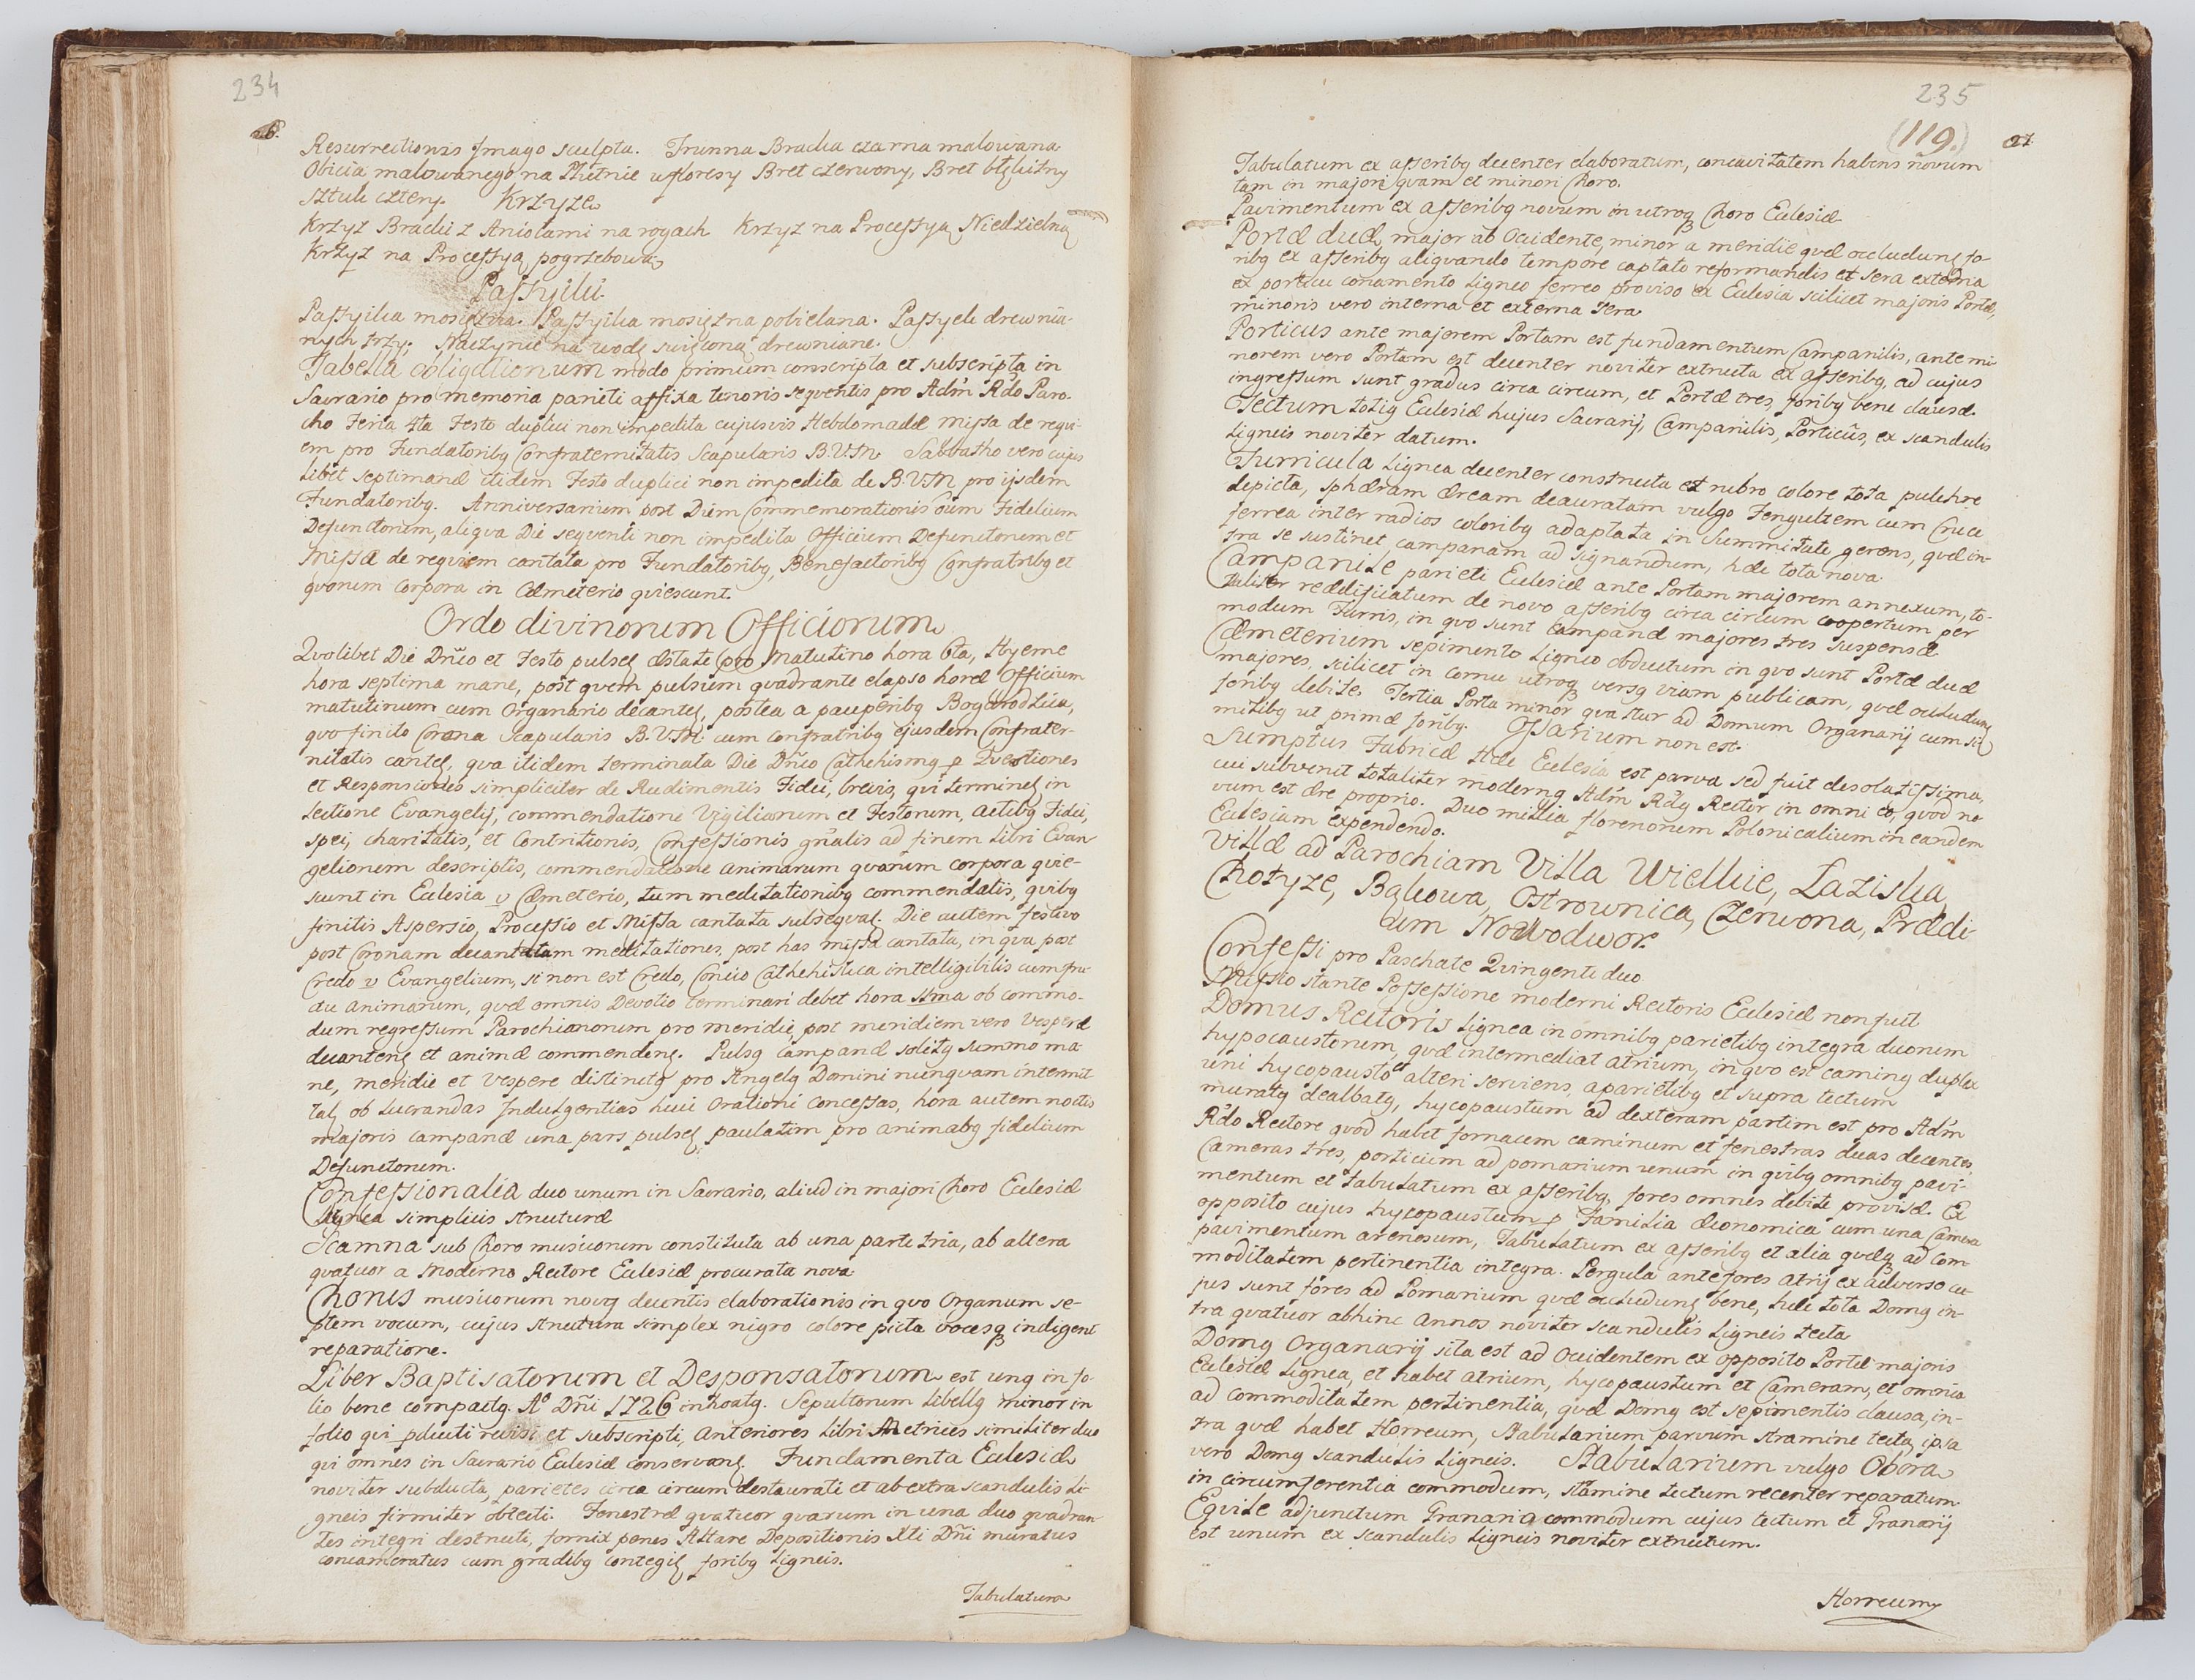 234
26.
Resurrectionis Jmago sculpta. Trunna Bracka czarna malowana
Obicia malowanego na Płutnie w floresy Bret czerwony, Bret błękitny
sztuk cztery. Krzyze
Krzyz Bracki z Aniołami na rogach Krzyz na Processyą Niedzielną
Krzyz na Processyą pogrzebową
Passyiki.
Passyika mosięzna. Passyika mosięzna pobielana. Passyek drewnia-
nych trzy; Naczynie na wodę swięconą drewniane.
Tabella obligationum modo primum conscripta et subscripta in
Sacrario pro memoria parieti affixa tenoris seqventis pro Adm̃ R̃do Paro-
cho Feria 4ta Festo duplici non impedita cujusvis Hebdomadæ Missa de requi-
em pro Fundatoribq Confraternitatis Scapularis B.V.M. Sabbatho vero cujus
libet septimanæ itidem Festo duplici non impedita de B.V.M pro ijsdem
Fundatoribq. Anniversarium post Diem Commemorationis õium Fidelium
Defunctorum, aliqva Die seqventi non impedita Officium Defunctorum et
Missæ de reqviem cantata pro Fundatoribq, Benefactoribq Confratribq et
qvorum corpora in Cæmeterio qviescunt.
Ordo divinorum Officiorum
Qvolibet Die Dñico et Festo pulsę æstate pro Matutino hora 6ta, Hyeme
hora septima mane, post qvem pulsum qvadrante elapso horæ Officium
matutinum cum Organario decantę, postea a pauperibq Bogarodzica,
qvo finito Corona Scapularis B.V.M. cum confratribq ejusdem Confrater-
nitatis cantę, qva itidem terminata Die Dñico Cathehismq p Qvestiones
et Responsiones simpliciter de Rudimentis Fidei, brevis, qvi terminę in
lectione Evangelij, commendatione Vigiliarum et Festorum, actibq Fidei,
spei, charitatis, et Contritionis, Confessionis gñalis ad finem Libri Evan
geliorum descriptis, commendatione animarum qvarum corpora qvie-
scunt in Ecclesia v Cæmeterio, tum meditationibq commendatis, qvibq
finitis Aspersio, Processio et Missa cantata subseqvaę. Die autem festivo
post Coronam decantatam meditationes, post has missa cantata, in qva post
Credo v Evangelium, si non est Credo, Concio Cathehistica intelligibilis cum fru-
ctu animarum, qvæ omnis Devotio terminari debet hora 11ma ob commo-
dum regressum Parochianorum pro meridie, post meridiem vero Vesperæ
decantenę et animæ commendenę. Pulsq campanæ solitq summo ma-
ne, meridie et vespere distinctq pro Angelq Domini nunqvam intermit
taę ob lucrandas Jndulgentias huic Orationi concessas, hora autem noctis
majoris campanæ una pars pulsę paulatim pro animabq fidelium
Defunctorum.
Confessionalia duo unum in Sacrario, aliud in majori Choro Ecclesiæ
lignea simplicis structuræ
Scamna sub Choro musicorum constituta ab una parte tria, ab altera
qvatuor a Moderno Rectore Ecclesiæ procurata nova
Chorus musicorum novq decentis elaborationis in qvo Organum se-
ptem vocum, cujus structura simplex nigro colore picta vocesq indigent
reparatione.
Liber Baptisatorum et Desponsatorum est unq in fo-
lio bene compactq. Aº Dñi 1726 inhoatq. Sepultorum libellq minor in
folio qvi pdicti revisi et subscripti, anteriores Libri Metrices similiter duo
qvi omnes in Sacrario Ecclesiæ conservanę. Fundamenta Ecclesiæ
noviter subducta, parietes circa circum restaurati et ab extra scandulis li-
gneis firmiter obtecti. Fenestræ qvatuor qvarum in una duo qvadran
tes integri destructi, fornix penes Altare Depositionis Xti Dñi muratus
concameratus cum gradibq contegię foribq ligneis.
Tabulatum
235
(119.)
27
Tabulatum ex asseribq decenter elaboratum, concavitatem habens novum
tam in majori qvam et minori Choro.
Pavimentum ex asseribq novum in utroq Choro Ecclesiæ
Portæ duæ, major ab Occidente, minor a meridie qvæ occludunę fo-
ribq ex asseribq aliqvando tempore captato reformandis et sera externa
ex porticu conamento ligneo ferreo proviso ex Ecclesia scilicet majoris Portæ,
minoris vero interna et externa sera
Porticus ante majorem Portam est fundamentum Campanilis, ante mi-
norem vero Portam est decenter noviter extructa ex asseribq, ad cujus
ingressum sunt gradus circa circum, et Portæ tres, foribq bene clausæ.
Tectum totiq Ecclesiæ hujus Sacrarij, Campanilis, Porticûs, ex scandulis
ligneis noviter datum.
Turricula lignea decenter constructa et rubro colore tota pulchre
depicta, sphæram æream deauratam vulgo Fengultem cum Cruce
ferrea inter radios coloribq adaptata in Summitate gerens, qvæ in-
tra se sustinet campanam ad signandum, hæc tota nova
Campanile parieti Ecclesiæ ante Portam majorem annexum, to-
taliter reædificatum de novo asseribq circa circum coopertum per
modum Turris, in qvo sunt campanæ majores tres suspensæ
Cæmeterium sepimento ligneo obductum in qvo sunt Portæ duæ
majores, scilicet in cornu utroq versq viam publicam, qvæ occludunę
foribq debite. Tertia Porta minor qva itur ad Domum Organarij cum si-
milibq ut primæ foribq. Ossarium non est.
Sumptus Fabricæ Hæc Ecclesia est parva sed fuit desolatissima,
cui subvenit totaliter modernq Adm̃ R̃dq Rector in omni eo, qvod no
vum est ære proprio. Duo millia florenorum Polonicalium in eandem
Ecclesiam expendendo.
Villæ ad Parochiam Villa Wielkie, Łaziska,
Chotyze, Bąkowa, Ostrownica, Czerwona, Prædi-
um Nowodwor.
Confessi pro Paschate Qvingenti duo
Missio stante Possessione moderni Rectoris Ecclesiæ non fuit
Domus Rectoris lignea in omnibq parietibq integra duorum
hypocaustorum, qvæ intermediat atrium, in qvo est caminq duplex
uni hycopausto et alteri serviens, a parietibq et supra tectum
muratq dealbatq, hycopaustum ad dexteram partim est pro Adm̃
R̃do Rectore qvod habet fornacem caminum et fenestras duas decentes,
Cameras tres, porticum ad pomarium unum in qvibq omnibq pavi-
mentum et tabulatum ex asseribq, fores omnes debite provisæ. Ex
opposito cujus hycopaustum p Familia œconomica cum una Camera
pavimentum arenosum, Tabulatum ex asseribq et alia qvæq ad com-
moditatem pertinentia integra. Pergula ante fores atrij ex adverso cu-
jus sunt fores ad Pomarium qvæ occludunę bene, hæc tota Domq in-
tra qvatuor abhinc annos noviter scandulis ligneis tecta
Domq Organarij sita est ad Occidentem ex opposito Portæ majoris
Ecclesiæ lignea, et habet atrium, hycopaustum et Cameram, et omnia
ad commoditatem pertinentia, qvæ Domq est sepimentis clausa, in-
tra qvæ habet Horreum, Stabularium parvum stramine tecta, ipsa
vero Domq scandulis ligneis. Stabularium vulgo Obora
in circumferentia commodum, stramine tectum recenter reparatum.
Eqvile adjunctum Granario commodum cujus tectum et Granarij
est unum ex scandulis ligneis noviter extructum.
Horreum